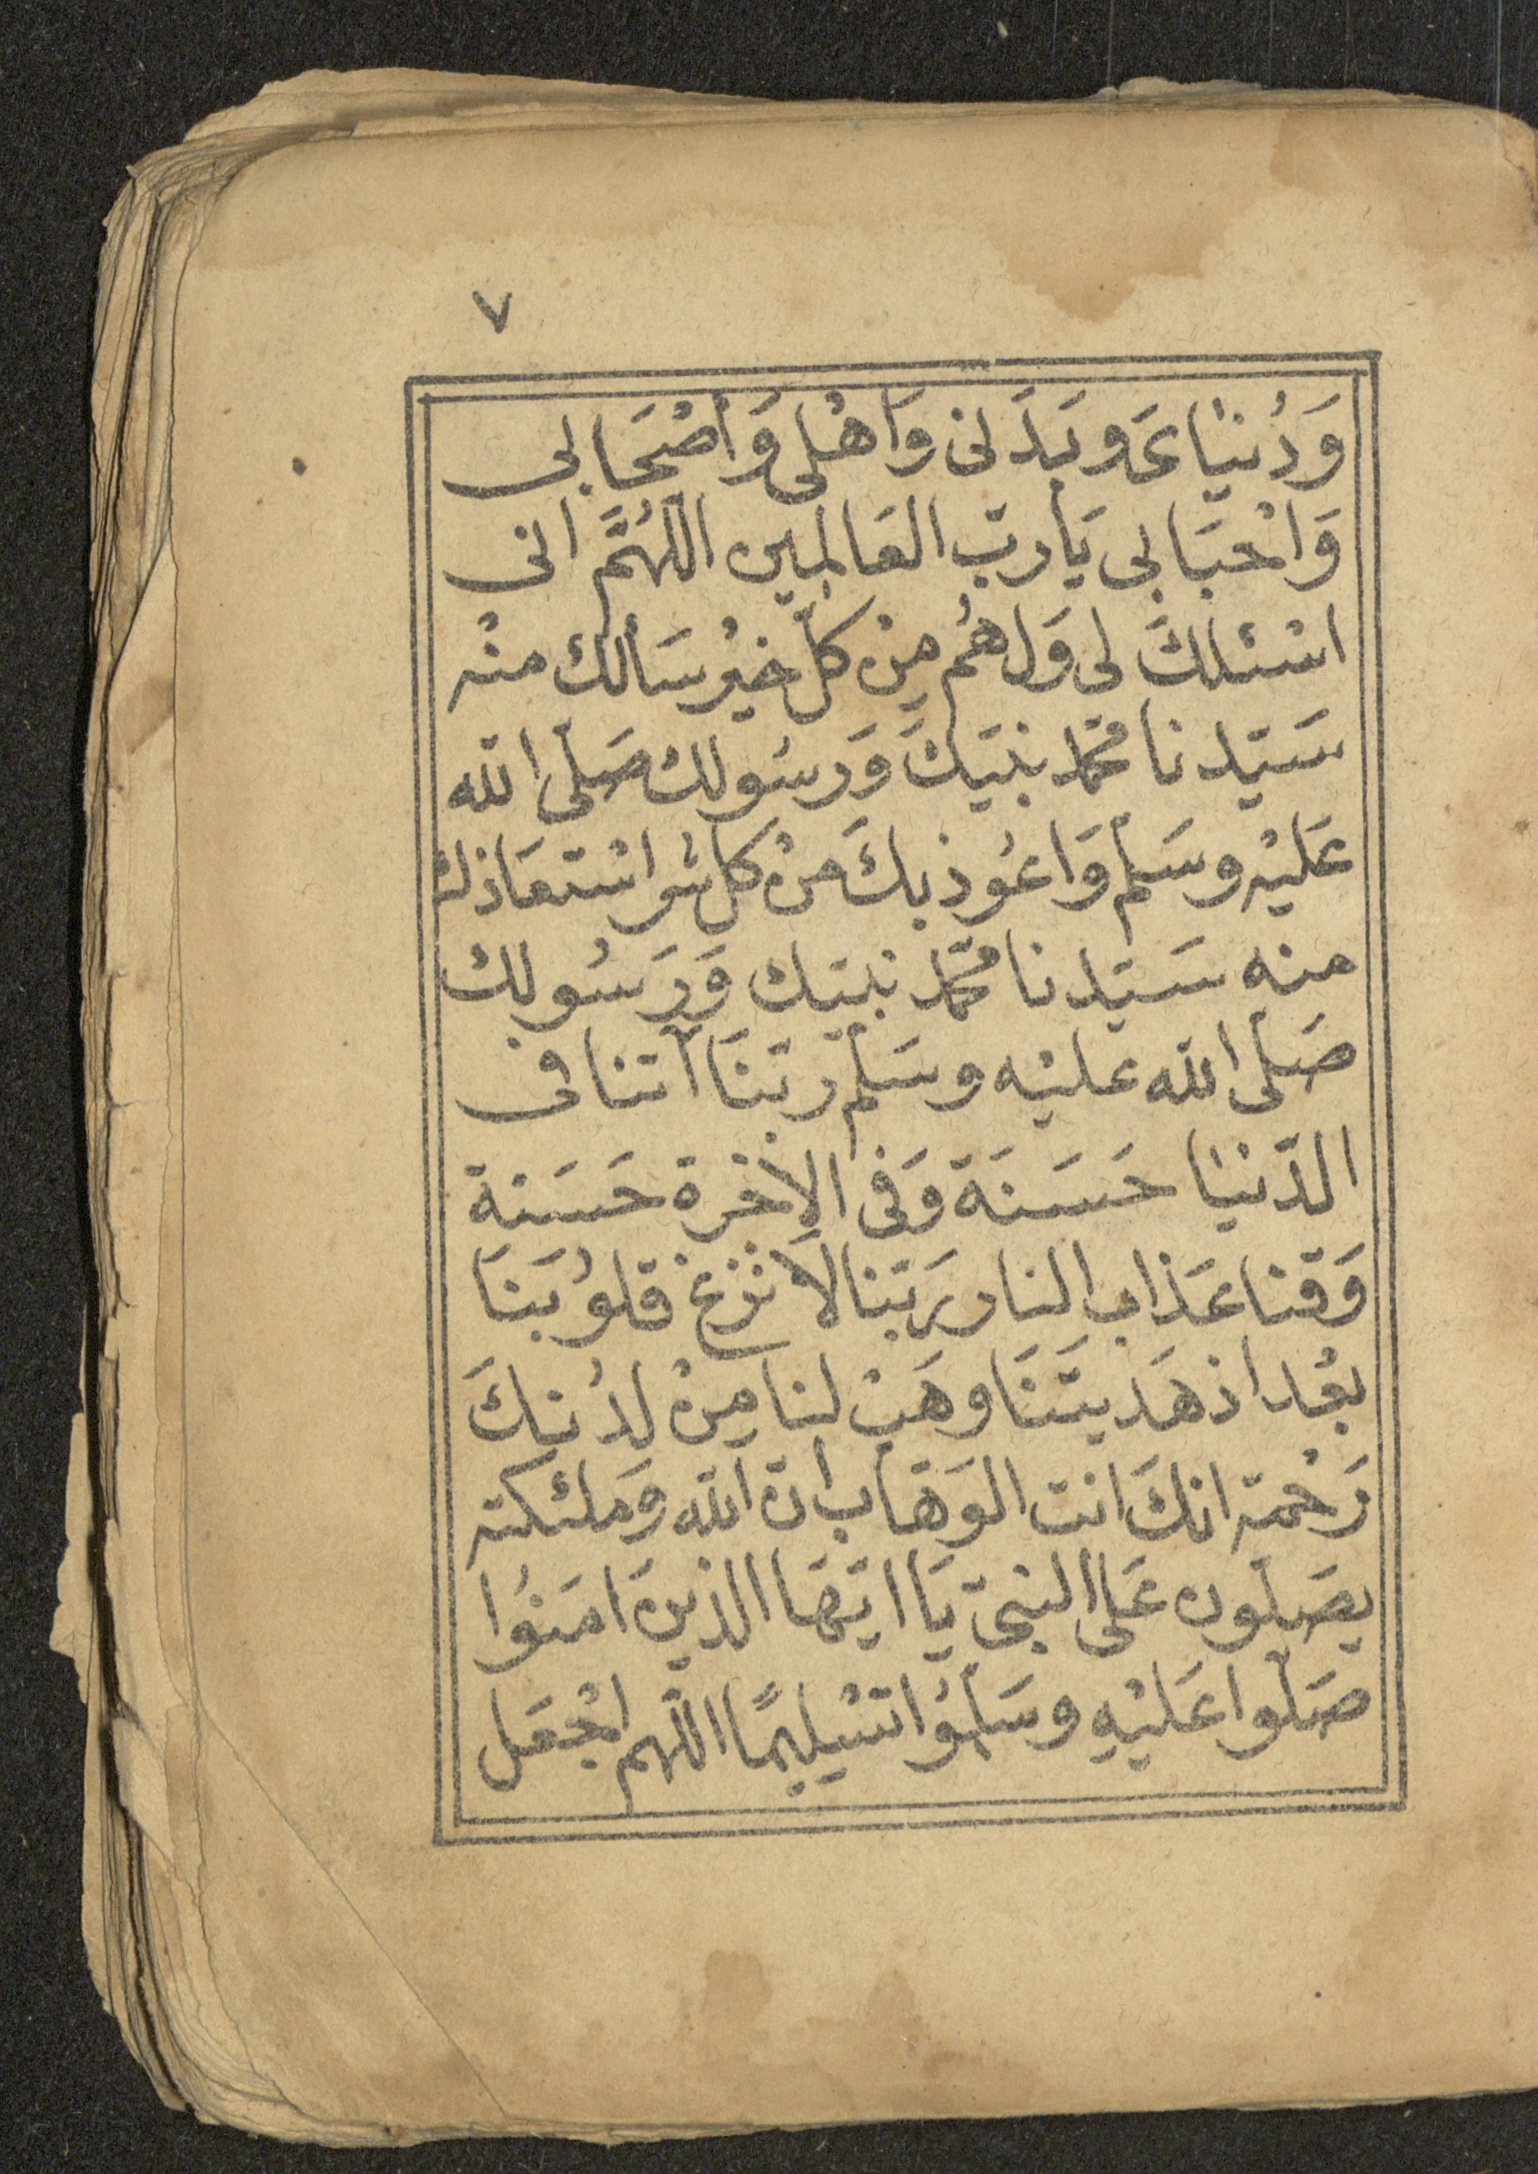 ٧
وَدُنيَاىَ وبَدَنى وَاهْلى وَأصْحَابى
وَاحْبَابى يَارب العَالمِين اللّهُمَّ انى
اسْئلكَ لى وَلهُم مِنْ كلّ خيْر سَألك منْه
سَيّدنا محمّد نبيّكَ وَرسُولك صَلّى الله
عَليْه وسَلّم وَاعُوذ بكَ منْ كل شر اسْتعَاذك
منه سَيّدنا محمّد نبيّك وَرَسُولك
صَلّى الله عليْه وسَلّم ربّنَا آتنا فى
الدّنيَا حَسَنَة وَفى الاٰخرة حَسَنة
وَقنا عَذاب النار رَبّنا لَا تزغ قلوُبَنَا
بعْد اذ هَديتَنَا وهَبْ لنا مِنْ لدُنكَ
رَحْمة انكَ انت الوَهّاب انّ الله وَملئكته
يصَلّون عَلى النبىّ يَا ايّهَا الذينَ امَنوُا
صَلّوا عَليْهِ وسَلّموُا تسْلِيمًا اللّهم اجْعَل